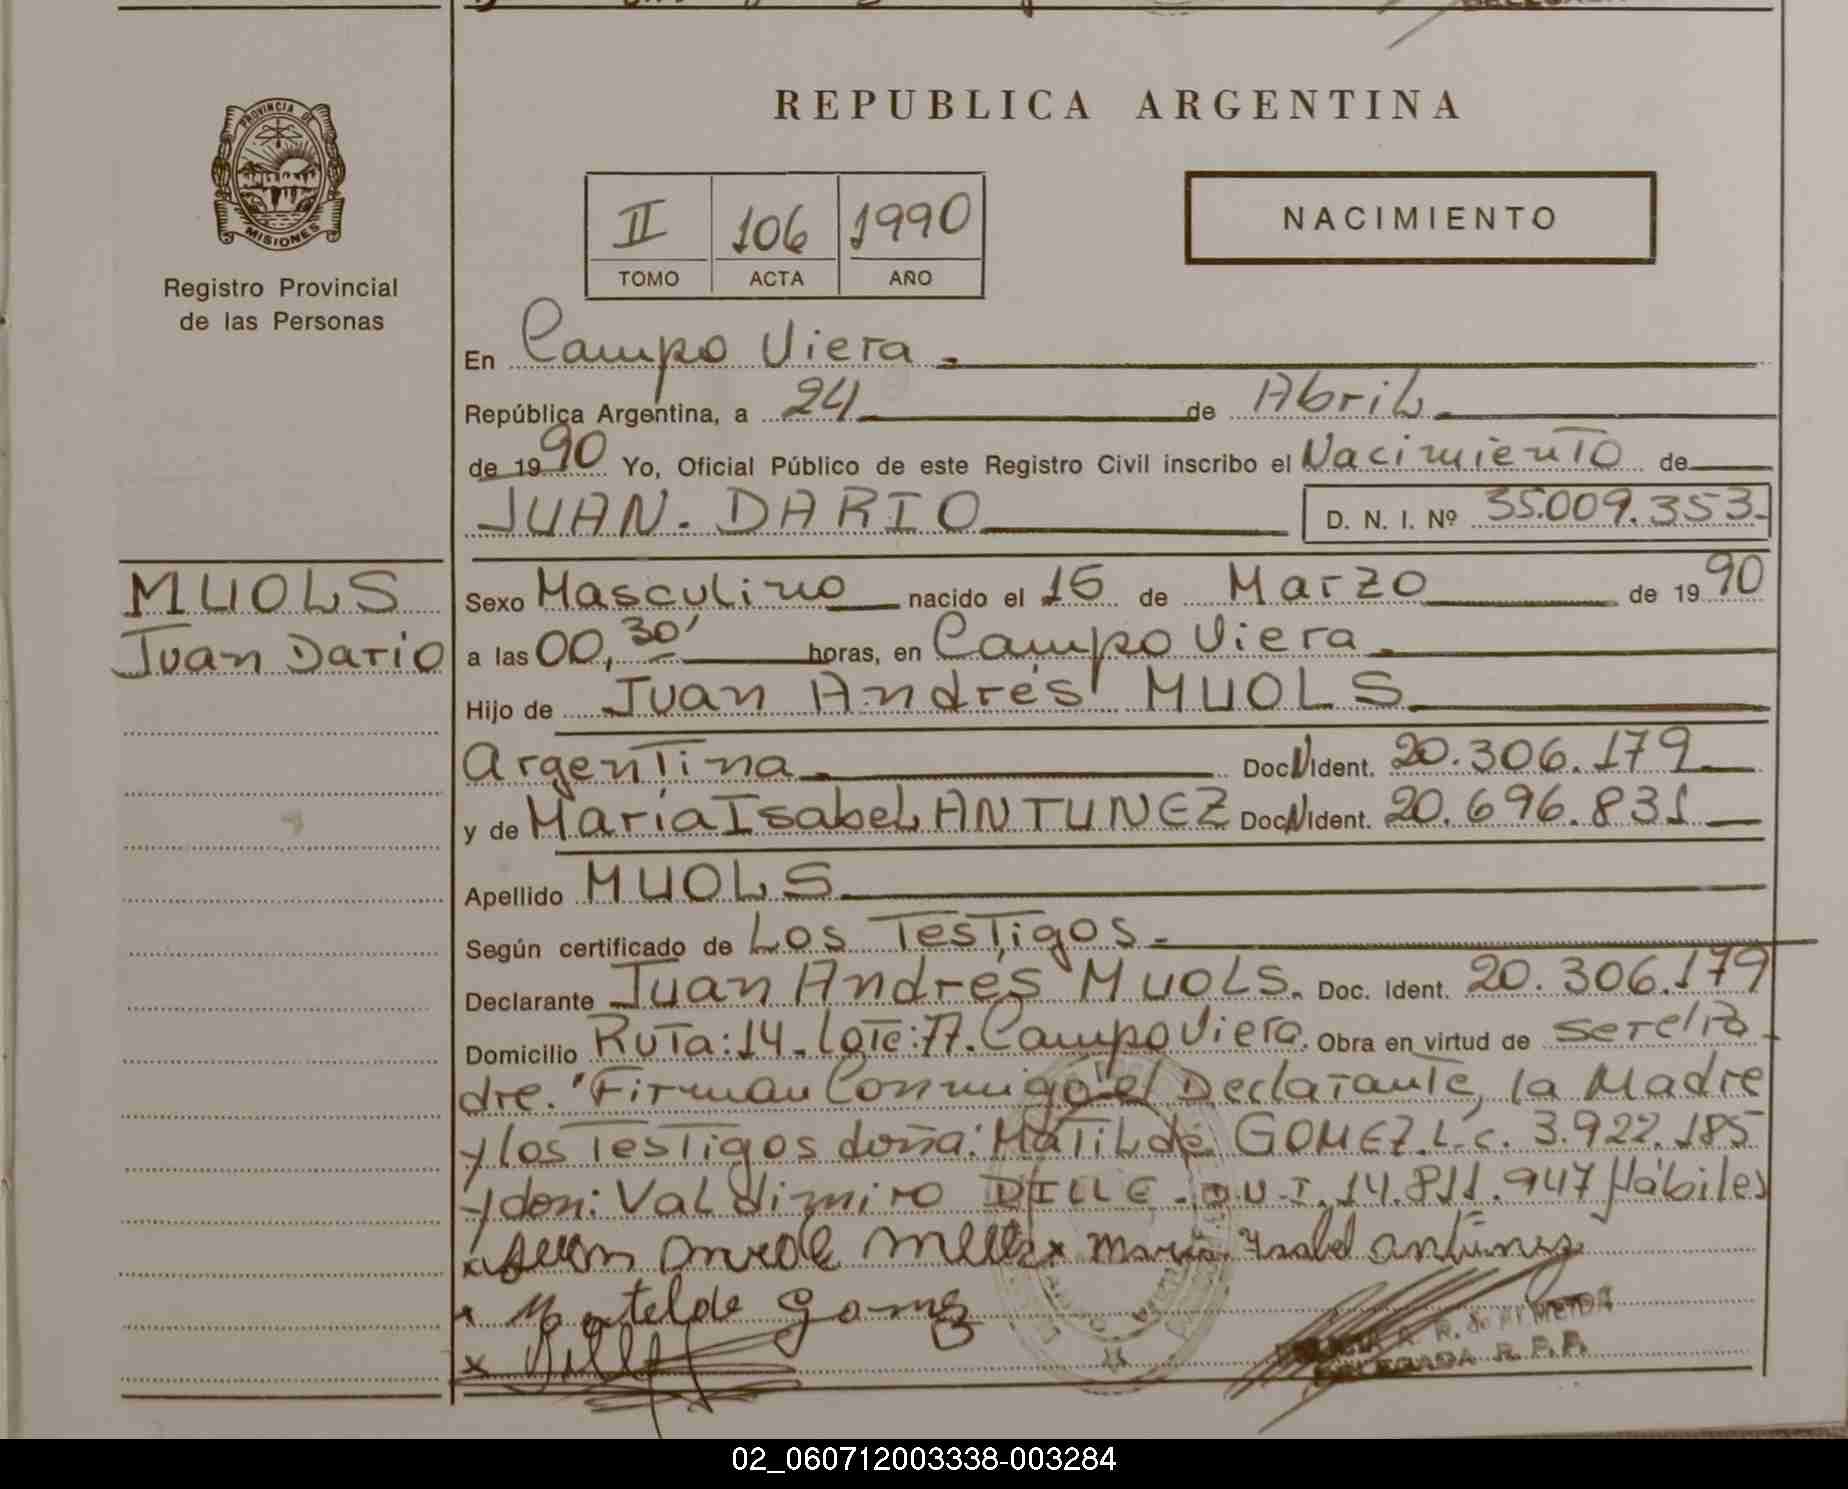 REPUBLICA ARGENTINA
PROVINCIA DE
MISIONES
Registro Provincial
de las Personas
II 106 1990
TOMO ACTA AÑO
NACIMIENTO
En Campo Viera
República Argentina, a 24 de Abril
de 1990 Yo, Oficial Público de este Registro Civil inscribo el Nacimiento de
JUAN. DARIO D. N. I. Nº 35.009.353.
MUOLS
Juan Dario
Sexo Masculino nacido el 15 de Marzo de 1990
a las 00,30' horas, en Campo Viera.
Hijo de Juan Andrés MUOLS
Argentina Doc N Ident. 20.306.179
y de María Isabel ANTUNEZ Doc N Ident. 20.696.831
Apellido MUOLS
Según certificado de Los Testigos.
Declarante Juan Andrés MUOLS. Doc. Ident. 20.306.179
Domicilio Ruta: 14. Lote: 77. Campo Viera. Obra en virtud de ser el Pa
dre. Firman Conmigo el Declarante, la Madre
y los Testigos doña: Matilde GOMEZ. L.C. 3.922.185
y don: Valdimiro DILLE. D.N.I. 14.811.947 Hábiles
x x Maria Ysabel antunes
x Matelde gomes
x
R. de ALMEIDA
DELEGADA R. P. P.
02_060712003338-003284